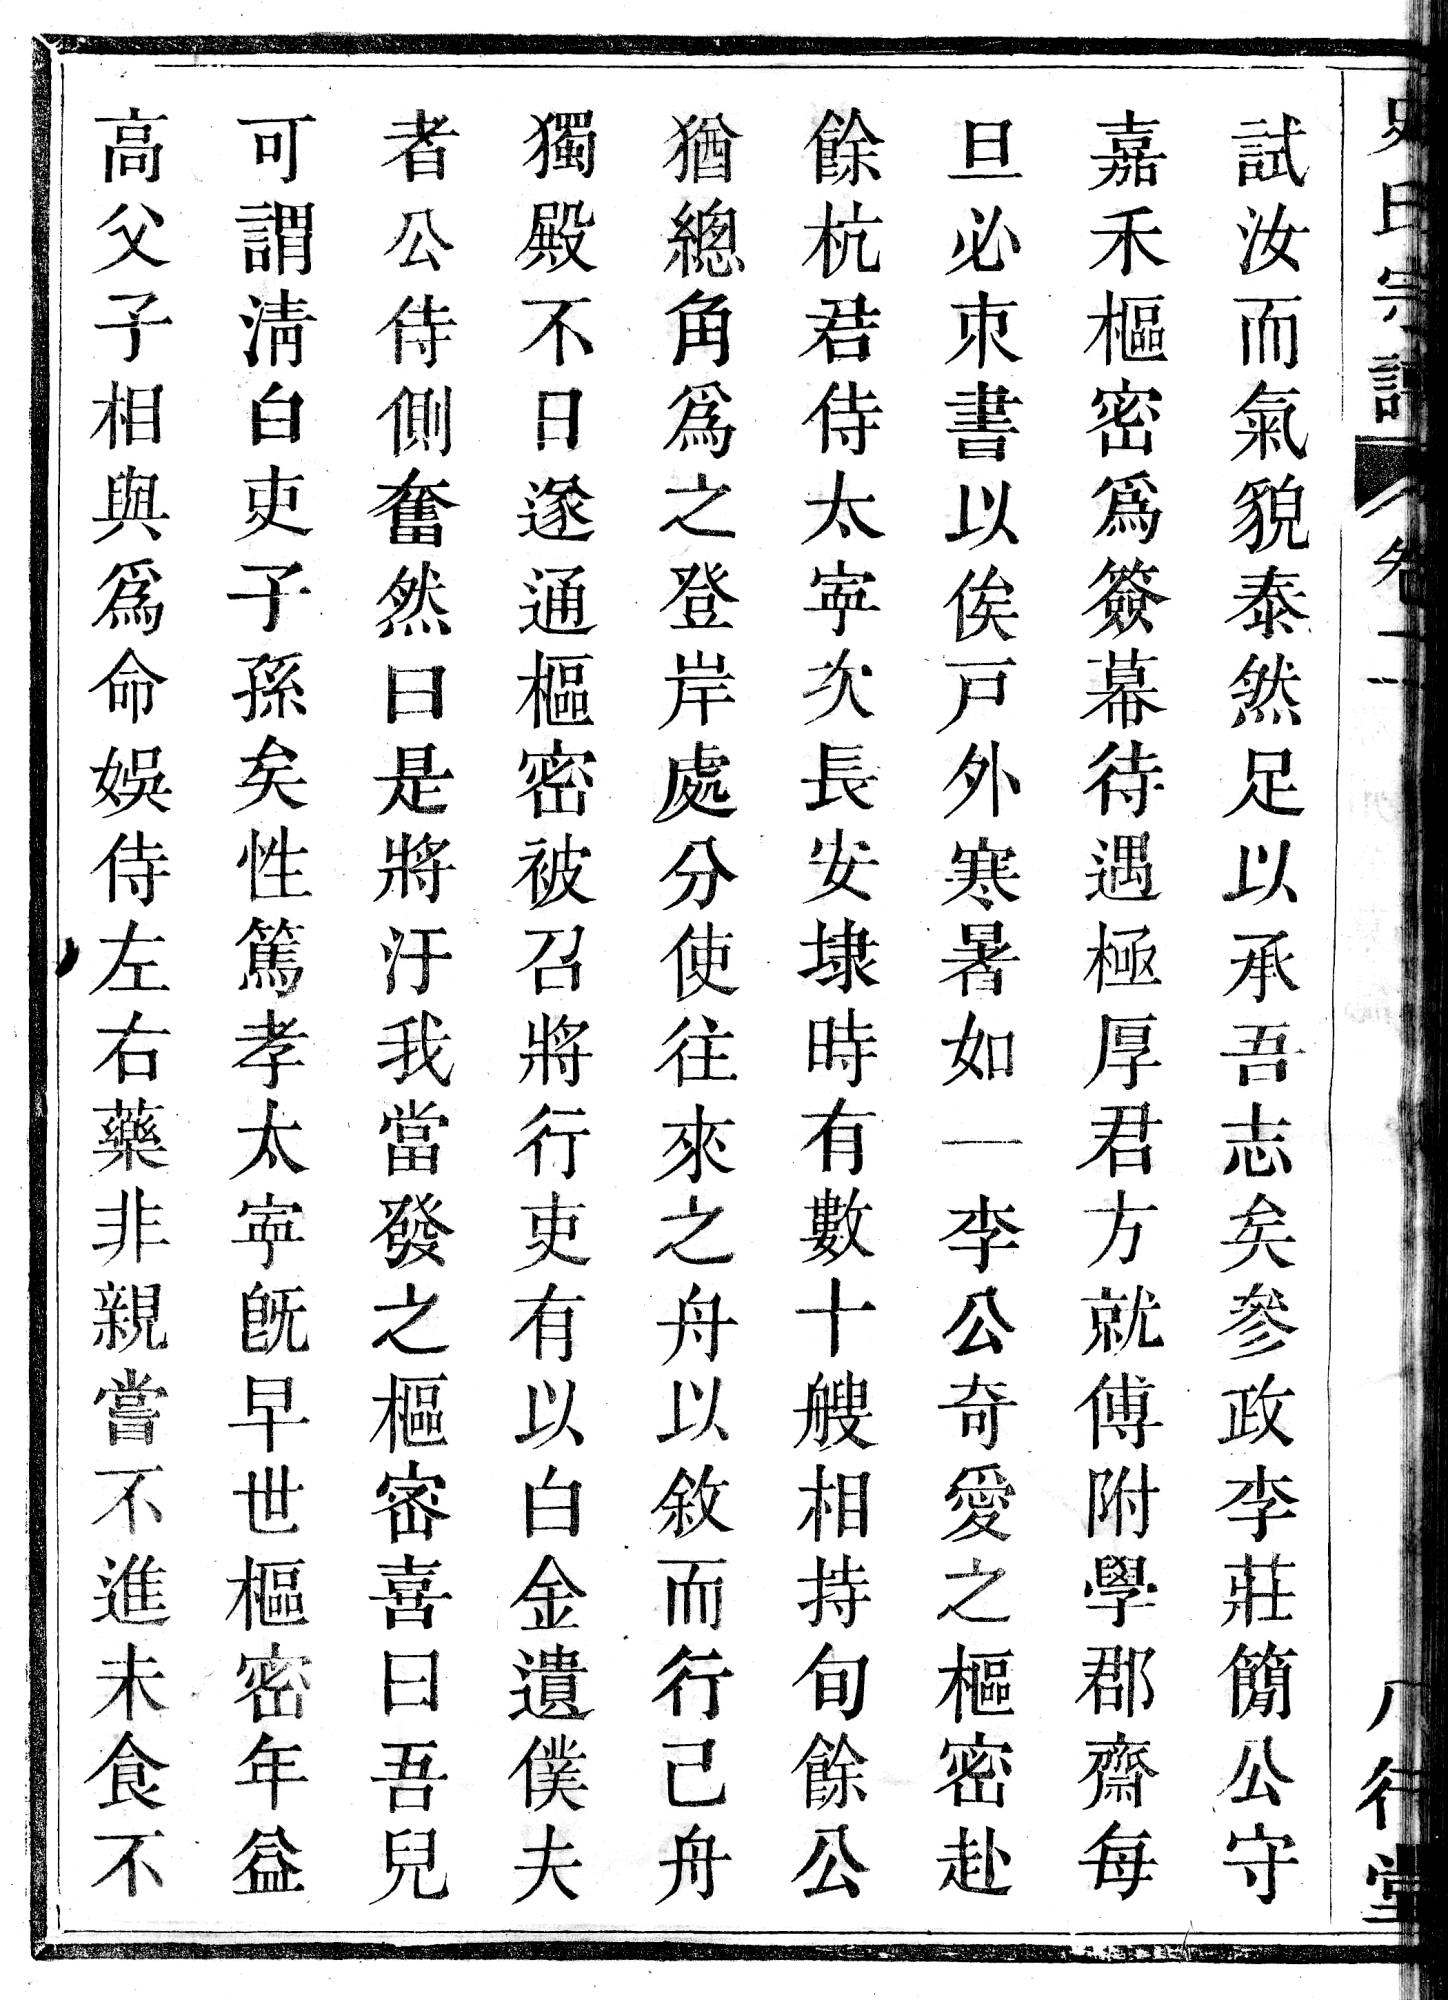 史氏宗譜 卷二 八行堂
試汝而氣貌泰然足以承吾志矣參政李莊簡公守
嘉禾樞密爲簽幕待遇極厚君方就傅附學郡齋每
旦必朿書以俟戸外寒暑如一李公奇愛之樞密赴
餘杭君侍太寍次長安埭時有數十艘相持旬餘公
猶總角爲之登岸處分使往來之舟以敘而行己舟
獨殿不日遂通樞密被召將行吏有以白金遺僕夫
者公侍側奮然曰是將汙我當發之樞密喜曰吾兒
可謂淸白吏子孫矣性篤孝太寍旣早世樞密年益
高父子相與爲命娛侍左右藥非親嘗不進未食不